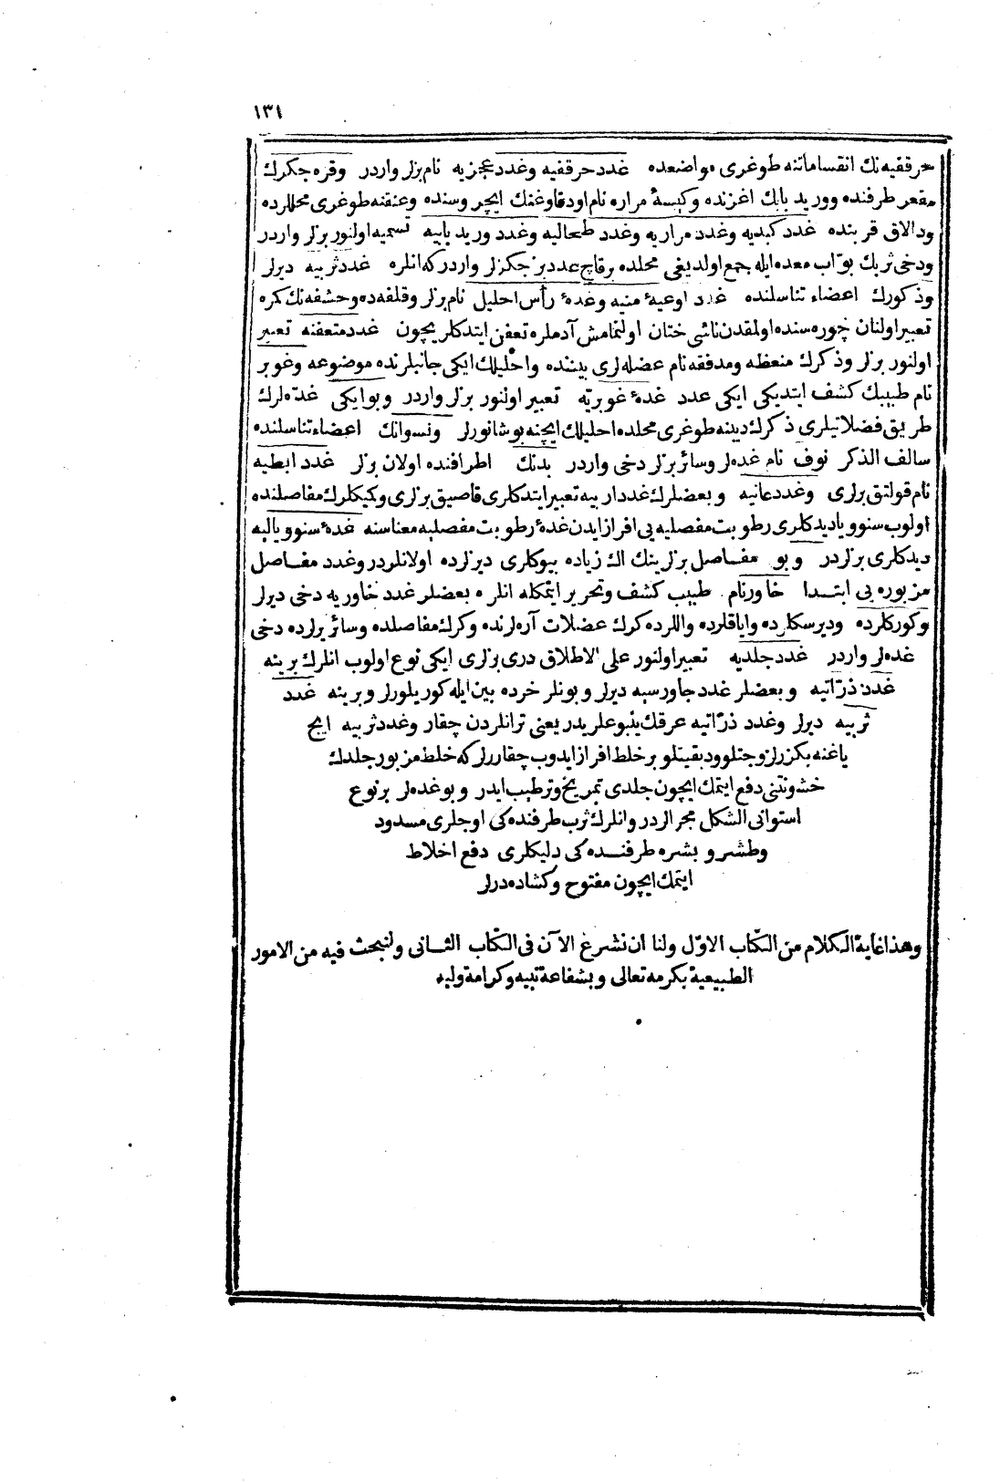 ١٣١
حرقفيه‌نك انقساماتنه طوغرى مواضعده غدد حرقفيه وغدد عجزيه نام بزلر واردر وقره جكرك
مقعر طرفنده ووريد بابك اغزنده وكيسهٔ مراره نام اود قاوغنك ايچروسنده وعنقنه طوغرى محللرده
ودالاق قربنده غدد كبديه وغدد مراريه وغدد طحاليه وغدد وريد بابيه تسميه اولنور بزلر واردر
ودخى ثربك بواب معده ايله جمع اولديغى محلده برقاچ عدد بزجكزلر واردر كه انلره غدد ثربيه ديرلر
وذكورك اعضاء تناسلنده غدد اوعيهٔ منيه وغدهٔ رأس احليل نام بزلر وقلفه‌ده وحشفه‌نك كمره
تعبير اولنان چوره‌سنده اولمقدن ناشى ختان اولنمامش آدملره تعفن ايتدكلريچون غدد متعفنه تعبير
اولنور بزلر وذكرك منعظه ومدفقه نام عضله‌لرى بيننده واحليلك ايكى جانبلرنده موضوعه وغوبر
نام طبيبك كشف ايتديكى ايكى عدد غدهٔ غوبريه تعبير اولنور بزلر واردر وبو ايكى غده‌لرك
طريق فضلاتيلرى ذكرك ديبنه طوغرى محلده احليلك ايچنه بوشانورلر ونسوانك اعضاء تناسلنده
سالف الذكر نوف نام غده‌لر وسائر بزلر دخى واردر بدنك اطرافنده اولان بزلر غدد ابطيه
نام قولتق بزلرى وغدد عانيه وبعضلرك غدد اربيه تعبير ايتدكلرى قاصيق بزلرى وكميكلرك مفاصلنده
اولوب سنوويا ديدكلرى رطوبت مفصليه‌يى افراز ايدن غدهٔ رطوبت مفصليه معناسنه غدهٔ سنوويالیه
ديدكلرى بزلردر وبو مفاصل بزلرينك الك زياده بيوكلرى ديزلرده اولانلردر وغدد مفاصل
مزبوره‌يى ابتدا خاورنام طبيب كشف وتحرير ايتمكله انلره بعضلر غدد خاوريه دخى ديرلر
وكوركلرده وديرسكلرده واياقلرده واللرده كرك عضلات آره‌لرنده وكرك مفاصلده وسائر يرلرده دخى
غده‌لر واردر غدد جلديه تعبير اولنور على الاطلاق درى بزلرى ايكى نوع اولوب انلرك برينه
غدد ذراتيه وبعضلر غدد جاورسيه ديرلر وبونلر خرده بين ايله كوريلورلر وبرينه غدد
ثربيه ديرلر وغدد ذراتيه عرقك ينبوعلريدر يعنى ترانلردن چقار وغدد ثربيه ايچ
ياغنه بكزر لزوجتلو ودبقيتلو بر خلط افراز ايدوب چقاررلر كه خلط مزبور جلدك
خشونتنى دفع ايتمك ايچون جلدى تمريخ وترطيب ايدر وبو غده‌لر بر نوع
استوانى الشكل مجرالردر وانلرك ثرب طرفنده‌كى اوجلرى مسدود
وطشرو بشره طرفنده‌كى دليكلرى دفع اخلاط
ايتمك ايچون مفتوح وكشاده‌درلر
وهذا غاية الكلام من الكتاب الاول ولنا ان نشرع الآن فى الكتاب الثانى ولنبحث فيه من الامور
الطبيعية بكرمه تعالى وبشفاعة نبيه وكرامة وليه